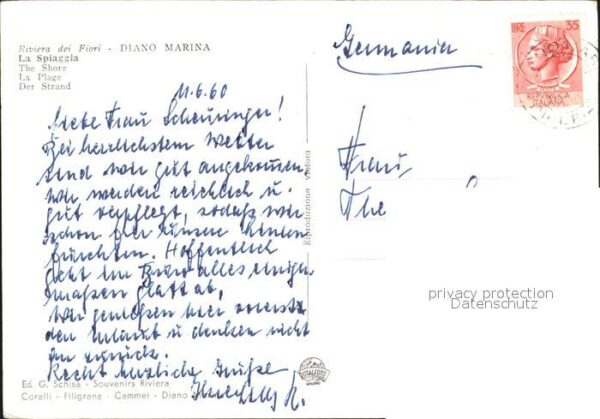 Riviera dei Fiori - DIANO MARINA
La Spiaggia
The Shore
La Plage
Der Strand
11.6.60
Liebe Frau Scheuringer!
Bei herrlichstem Wetter
sind wir gut angekommen.
Wir werden reichlich u.
gut verpflegt, sodaß wir
schon für unsere Linien
fürchten. Hoffentlich
geht im Büro alles einiger-
maßen glatt ab,
Wir genießen hier vorerst
den Urlaub u. denken nicht
an zurück.
Recht herzliche Grüße
Ed. G. Schisa - Souvenirs Riviera
Coralli - Filigrana - Cammei - Diano
Riproduzione vietata
Germania
LIRE 35
REPUBBLICA
ITALIANA
Frau
The
privacy protection
Datenschutz